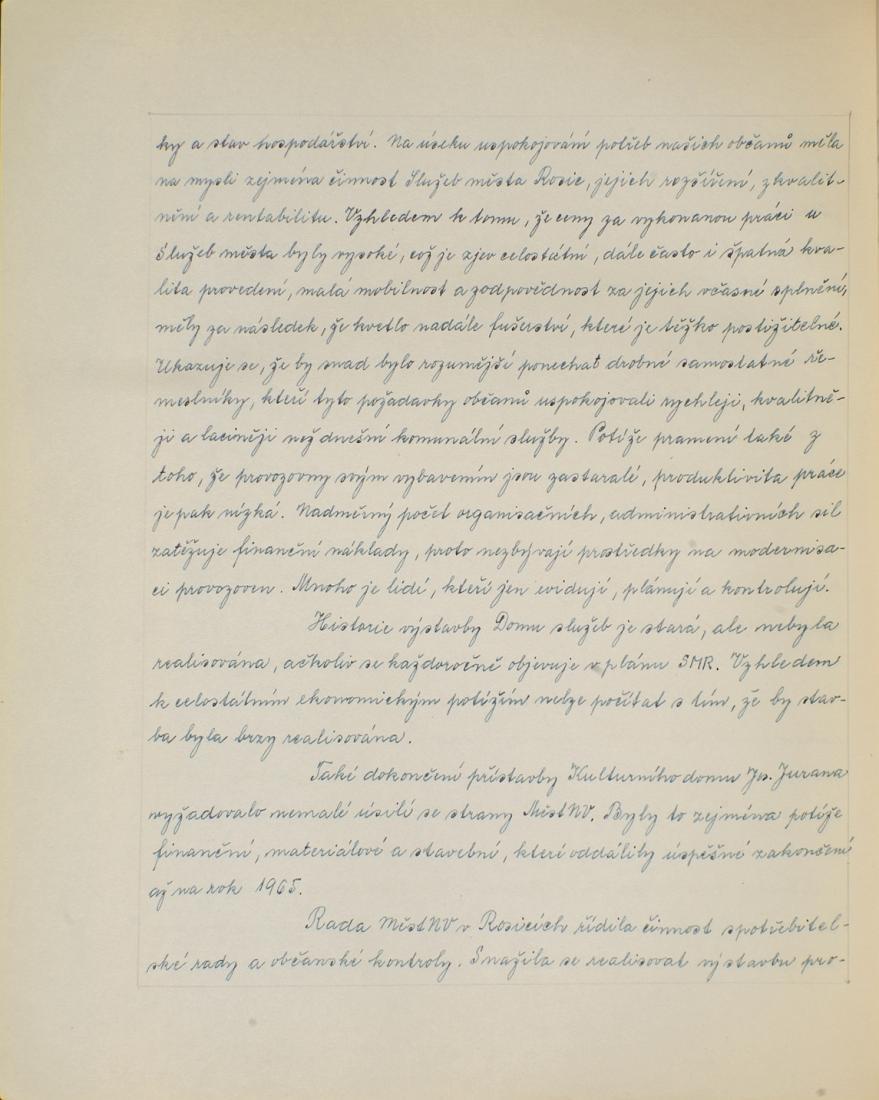 ky a stav hospodářství. Na úseku uspokojování potřeb našich občanů měla
na mysli zejména činnost Služeb města Rosic, jejich rozšíření, zkvalit-
nění a rentabilitu. Vzhledem k tomu, že ceny za vykonanou práci u
Služeb města byly vysoké, což je zjev celostátní, dále často i špatná kva-
lita provedení, malá mobilnost a zodpovědnost za jejich včasné splnění,
měly za následek, že kvetlo nadále fušerství, které je těžko postižitelné.
Ukazuje se, že by snad bylo rozumější ponechat drobné samostatné ře-
meslníky, kteří tyto požadavky občanů uspokojovali rychleji, kvalitně-
ji a laciněji než dnešní komunální služby. Potíže pramení také z
toho, že provozovny svým vybavením jsou zastaralé, produktivita práce
je pak nízká. Nadměrný počet organisačních, administrativních sil
zatěžuje finanční náklady, proto nezbývají prostředky na modernisa-
ci provozoven. Mnoho je lidí, kteří jen evidují, plánují a kontrolují.
Historie výstavby Domu služeb je stará, ale nebyla
realisována, ačkoliv se každoročně objevuje v plánu SMR. Vzhledem
k celostátním ekonomickým potížím nelze počítat s tím, že by stav-
ba byla brzy realisována.
Také dokončení přístavby Kulturního domu Jos. Jurana
vyžadovalo nemalé úsilí se strany MěstNV. Byly to zejména potíže
finanční, materiálové a stavební, které oddálily úspěšné zakončení
až na rok 1965.
Rada MěstNV v Rosicích řídila činnost spotřebitel-
ské rady a občanské kontroly. Snažila se realisovat výstavbu pro-